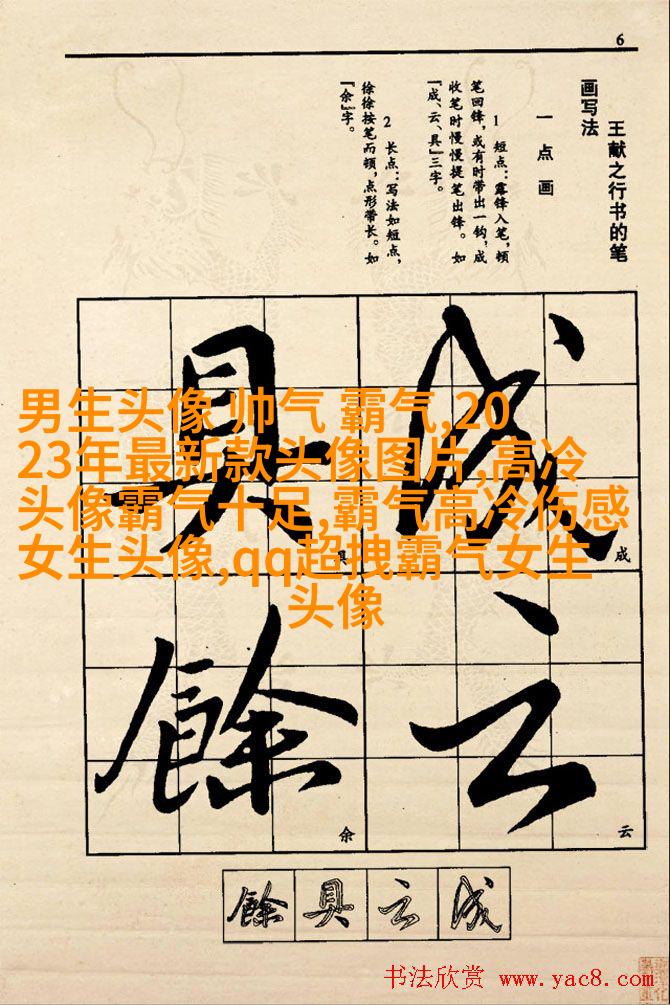 6
王献之行书的笔
画写法
一 点 画
1 短点：露锋入笔，顿
笔回锋，或有时带出一钩，成
收笔时慢慢提笔出锋。如
「成、云、具」三字。
2 长点：写法如短点，
徐徐按笔而顿，点形带长。如
「余」字。
成
具
成
具
云
餘
云
余
男生头像 帅气 霸气,20
23年最新款头像图片,高冷
头像霸气十足,霸气高冷伤感
女生头像,qq超拽霸气女生
头像
餘 具 云 成
书法欣赏 www.yac8.com